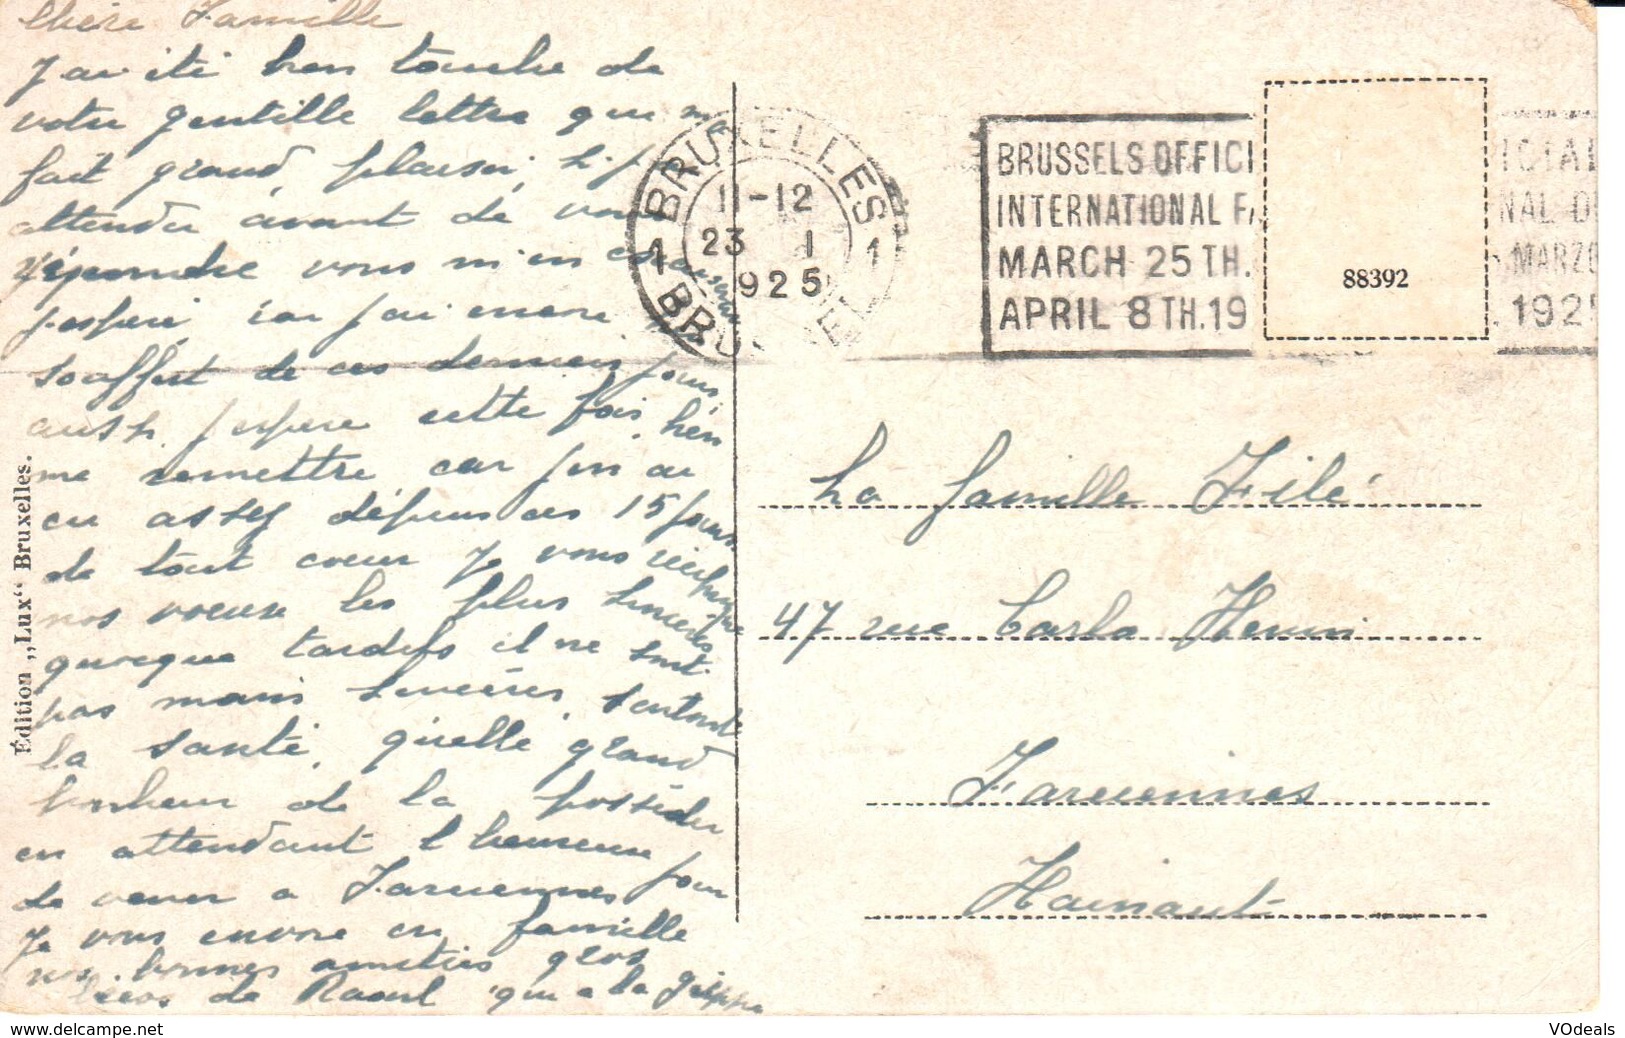 Chère Famille
J'ai été bien touché de
votre gentille lettre qui m'a
fait grand plaisir, si j'ai
attendu avant de vous
répondre vous m'en excuserez
j'espère, car j'ai encore
souffert de ces derniers jours,
aussi j'espère cette fois bien
me remettre car j'en ai
eu assez dépuis ces 15 jours.
de tout coeur je vous réciproque
nos voeux les plus sincères
quoique tardifs il ne sont
pas moins sincères, surtout
la santé, quelle grand
bonheur de la posséder
en attendant l'heureux jour
de venir a Farciennes
Je vous envoie en famille
nos bonnes amitiés gros
bécos de Raoul qui a la grippe
Édition „Lux“ Bruxelles.
BRUXELLES
11-12
23 I
1925
1 1
BRUSSEL
BRUSSELS OFFICI
INTERNATIONAL FA
MARCH 25TH.
APRIL 8TH.19
ICIAL
NAL D
MARZO
.1925
88392
La famille Filé
47 rue Carlo Henin
Farciennes
Hainaut
www.delcampe.net
VOdeals